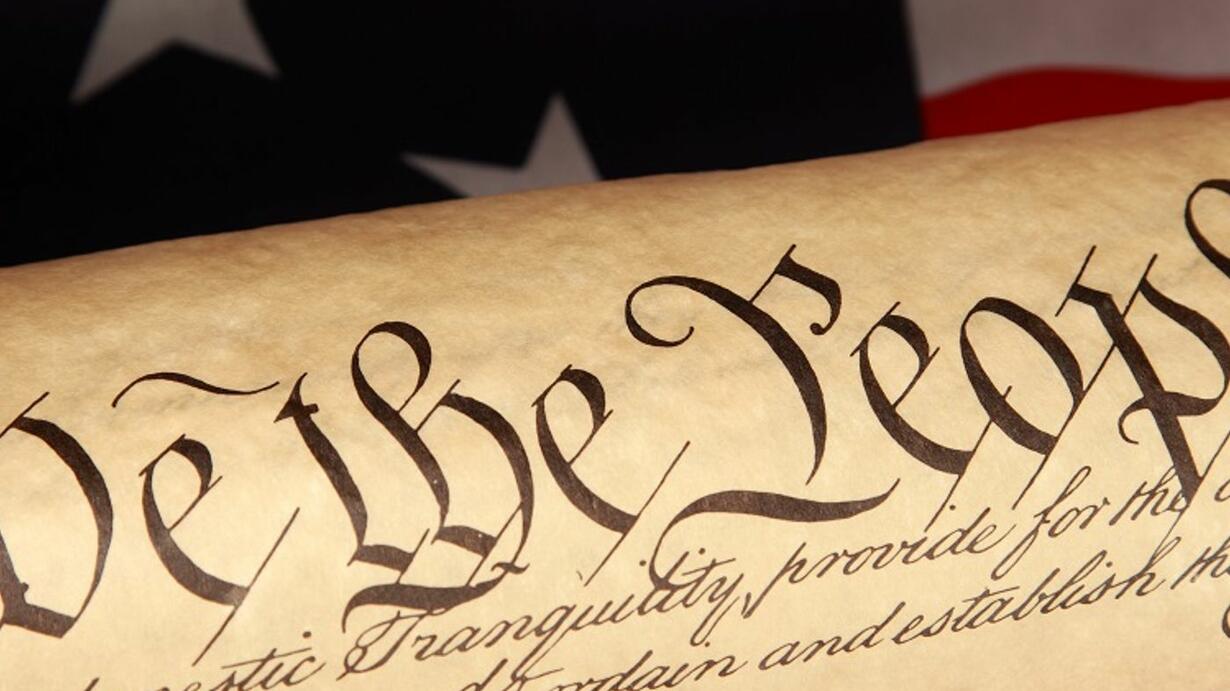 We the People
mestic Tranquility, provide for the
do ordain and establish this